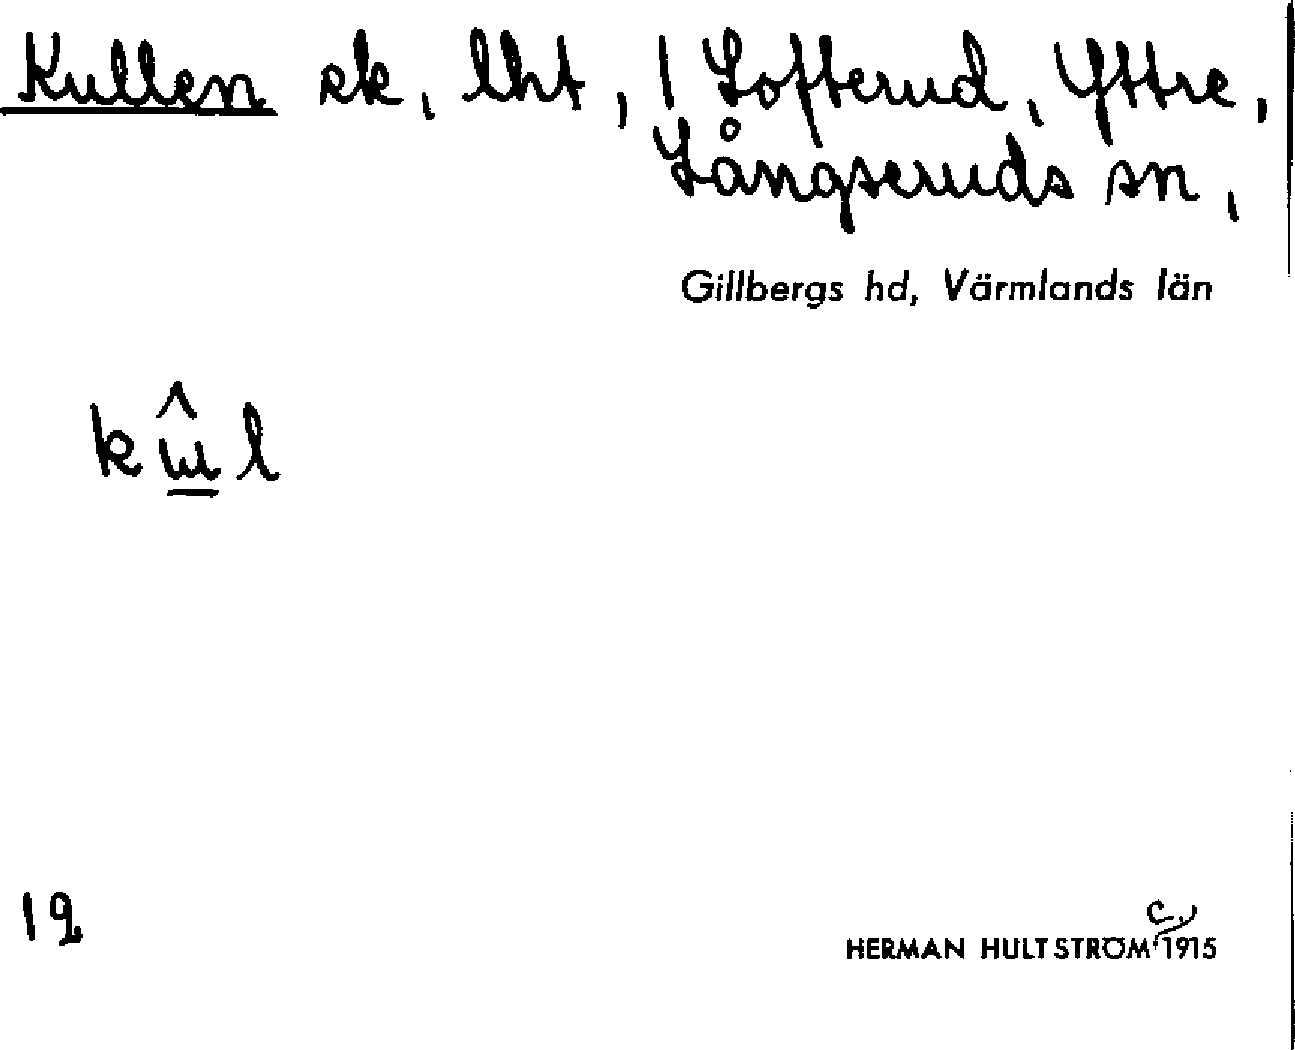 Kullen sk, lht, / Lofterud, Yttre,
Långseruds sn,
Gillbergs hd, Värmlands län
kûl
19
c.
HERMAN HULTSTRÖM 1915